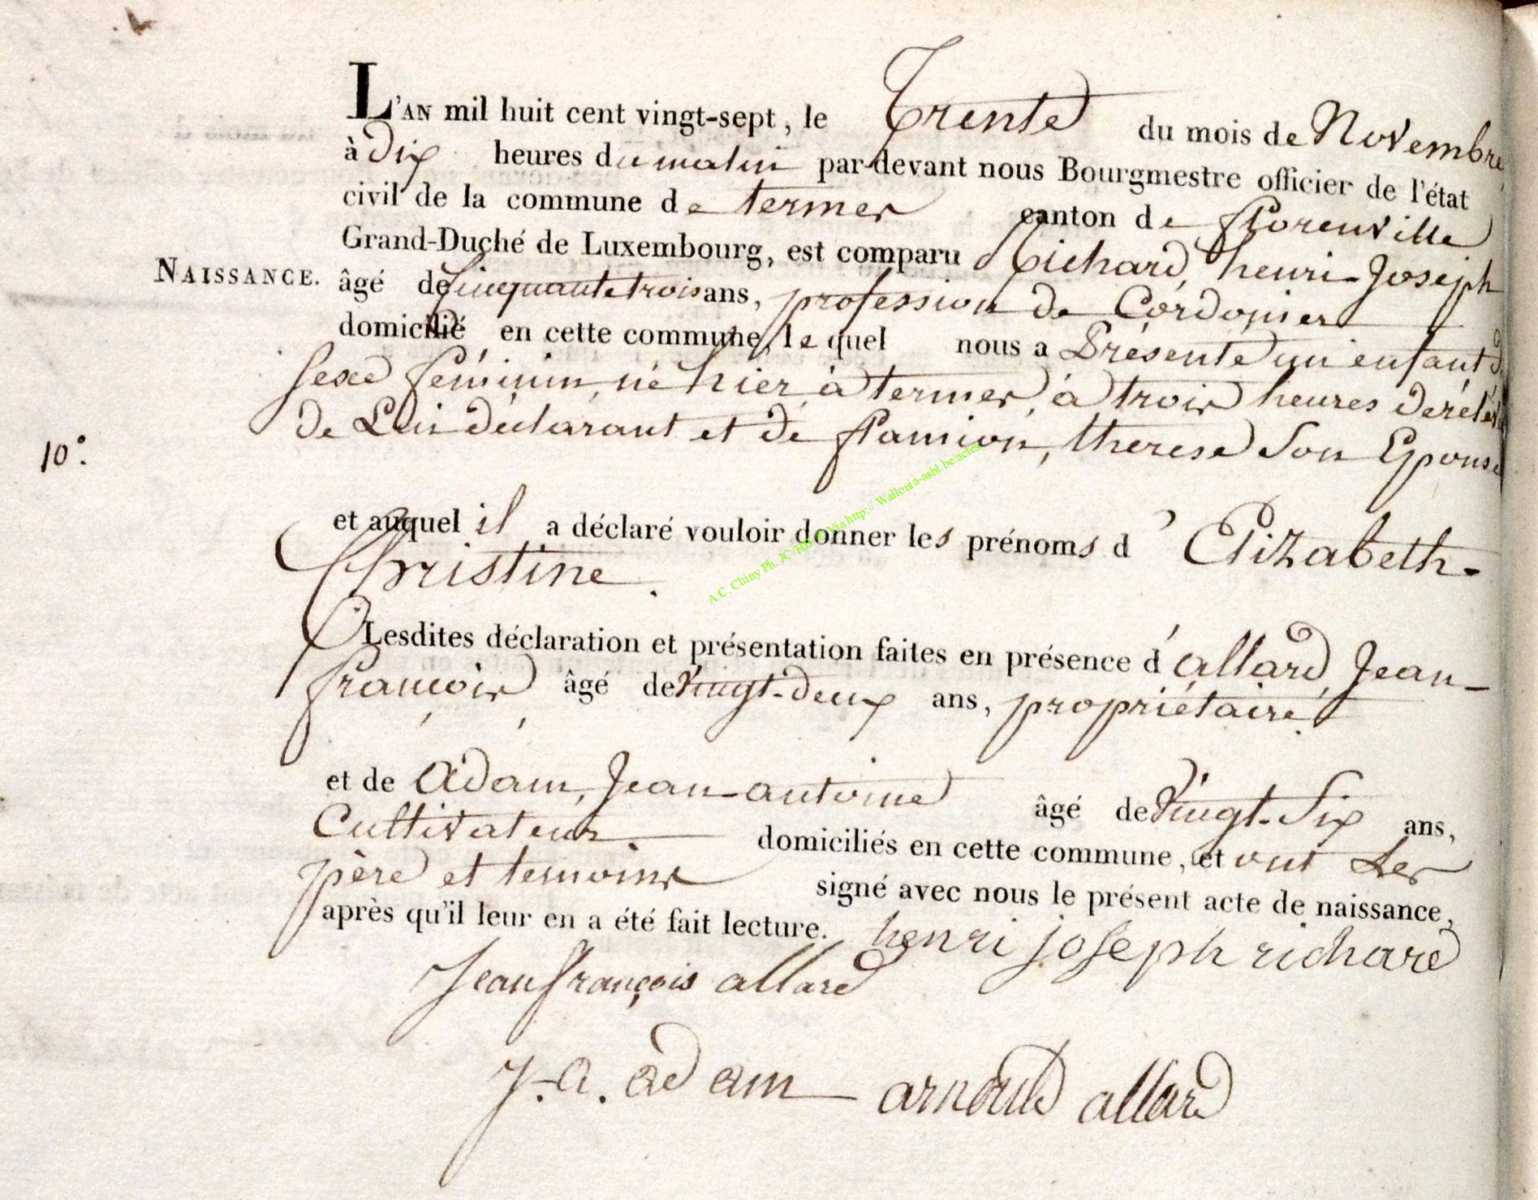 L'AN mil huit cent vingt-sept, le Trente du mois de Novembre
à dix heures du matin par-devant nous Bourgmestre officier de l'état
civil de la commune de termes canton de florenville
Grand-Duché de Luxembourg, est comparu Richard, henri-Joseph
NAISSANCE. âgé de Cinquante trois ans, profession de Cordonier
domicilié en cette commune, le quel nous a Présenté un enfant d
sexe féminin, né hier à termes, à trois heures de rélevé
10° de Lui déclarant et de flamion, therese Son Epouse
et auquel il a déclaré vouloir donner les prénoms d' Elizabeth-
Christine.
Lesdites déclaration et présentation faites en présence d'allard, Jean-
françois âgé de Vingt-deux ans, propriétaire
et de Adam, Jean-antoine âgé de Vingt-Six ans,
Cultivateur domiciliés en cette commune, et ont Les
père et temoins signé avec nous le présent acte de naissance,
après qu'il leur en a été fait lecture. henri joseph richard
Jean françois allard
J.-a. adam arnould allard
A.C. Chiny Ph.